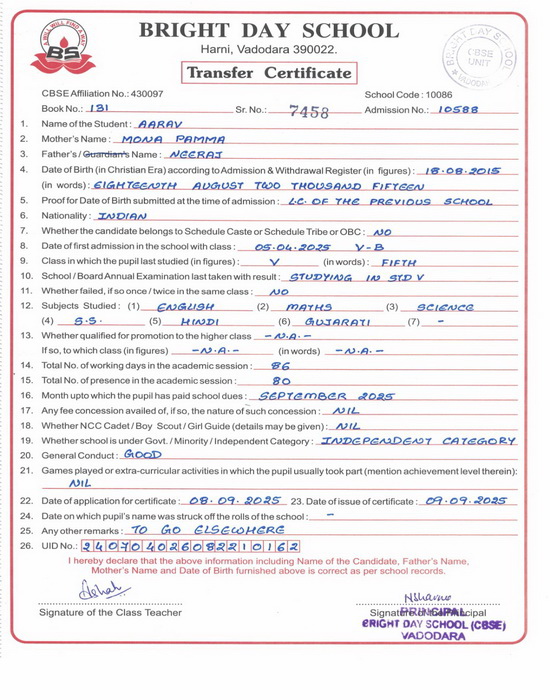 A WILL WILL FIND A WAY
BS
BRIGHT DAY SCHOOL
Harni, Vadodara 390022.
Transfer Certificate
BRIGHT DAY SCHOOL
CBSE
UNIT
VADODARA
CBSE Affiliation No.: 430097 School Code : 10086
Book No.: 131 Sr. No.: 7458 Admission No.: 10588
1. Name of the Student : AARAV
2. Mother's Name : MONA PAMMA
3. Father's / Guardian's Name : NEERAJ
4. Date of Birth (in Christian Era) according to Admission & Withdrawal Register (in figures) : 18.08.2015
(in words) : EIGHTEENTH AUGUST TWO THOUSAND FIFTEEN
5. Proof for Date of Birth submitted at the time of admission : L.C. OF THE PREVIOUS SCHOOL
6. Nationality : INDIAN
7. Whether the candidate belongs to Schedule Caste or Schedule Tribe or OBC : NO
8. Date of first admission in the school with class : 05.04.2025 V-B
9. Class in which the pupil last studied (in figures) : V (in words) : FIFTH
10. School / Board Annual Examination last taken with result : STUDYING IN STD V
11. Whether failed, if so once / twice in the same class : NO
12. Subjects Studied : (1) ENGLISH (2) MATHS (3) SCIENCE
(4) S.S. (5) HINDI (6) GUJARATI (7) -
13. Whether qualified for promotion to the higher class -N.A.-
If so, to which class (in figures) -N.A.- (in words) -N.A.-
14. Total No. of working days in the academic session : 86
15. Total No. of presence in the academic session : 80
16. Month upto which the pupil has paid school dues : SEPTEMBER 2025
17. Any fee concession availed of, if so, the nature of such concession : NIL
18. Whether NCC Cadet / Boy Scout / Girl Guide (details may be given) : NIL
19. Whether school is under Govt. / Minority / Independent Category : INDEPENDENT CATEGORY
20. General Conduct : GOOD
21. Games played or extra-curricular activities in which the pupil usually took part (mention achievement level therein):
NIL
22. Date of application for certificate : 08.09.2025 23. Date of issue of certificate : 09.09.2025
24. Date on which pupil's name was struck off the rolls of the school : -
25. Any other remarks : TO GO ELSEWHERE
26. UID No.: 240704026082210162
I hereby declare that the above information including Name of the Candidate, Father's Name,
Mother's Name and Date of Birth furnished above is correct as per school records.
Signature of the Class Teacher Signature of the Principal
PRINCIPAL
BRIGHT DAY SCHOOL (CBSE)
VADODARA